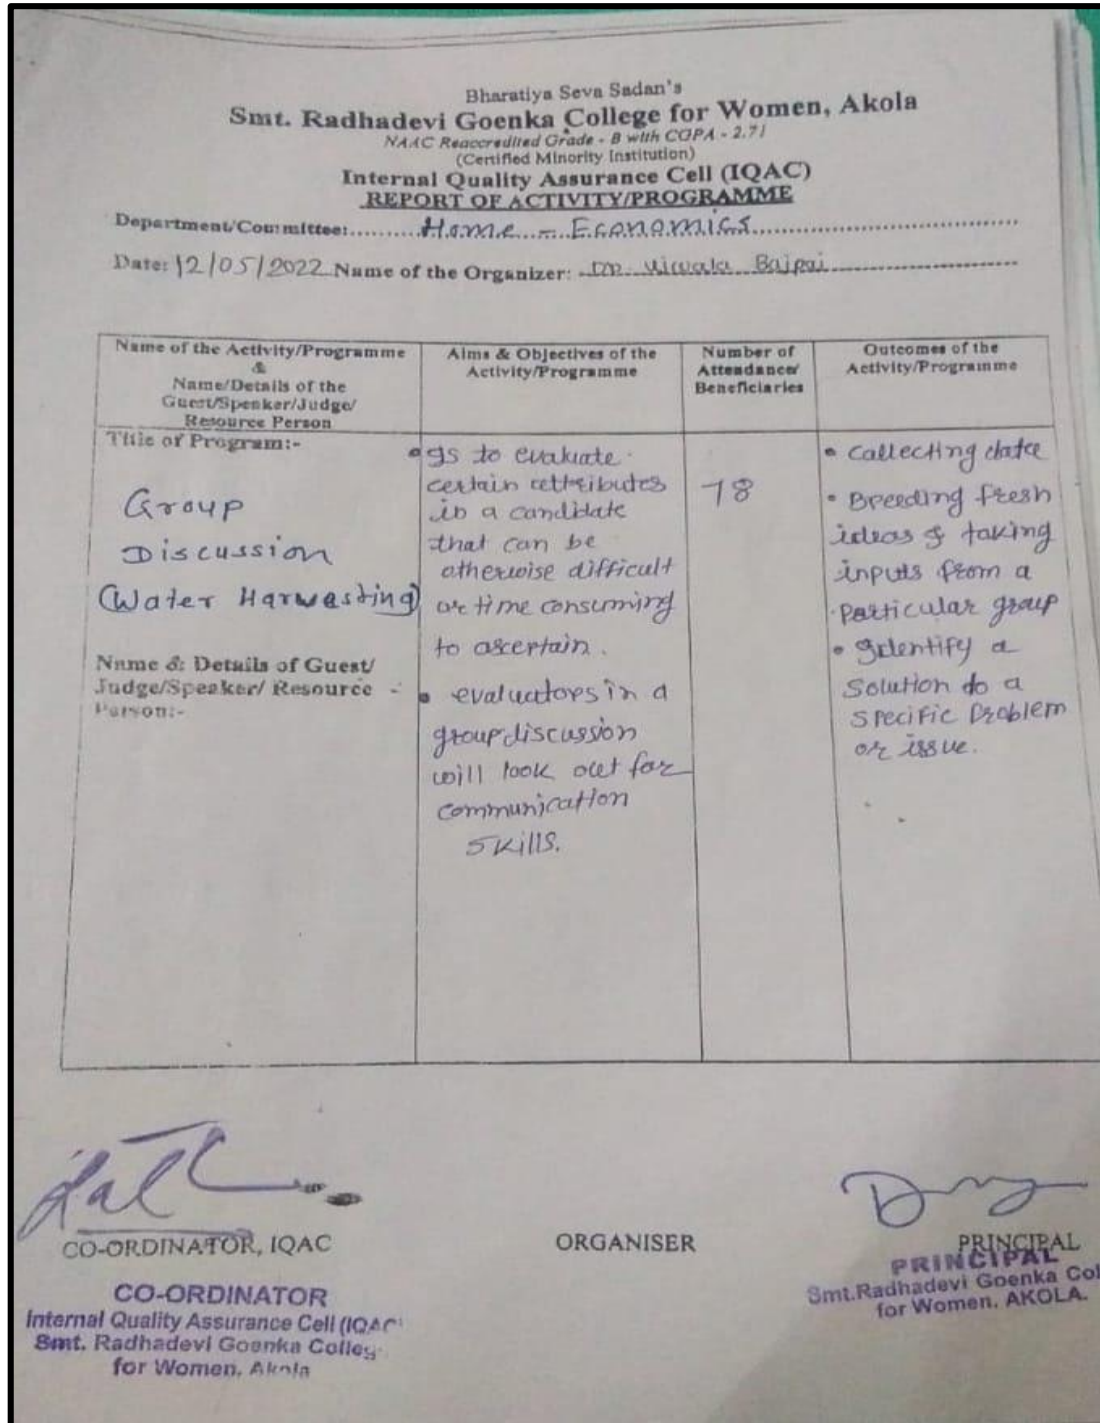 Bharatiya Seva Sadan's
Smt. Radhadevi Goenka College for Women, Akola
NAAC Reaccredited Grade - B with CGPA - 2.71
(Certified Minority Institution)
Internal Quality Assurance Cell (IQAC)
REPORT OF ACTIVITY/PROGRAMME
Department/Committee:........Home - Economics........
Date: 12/05/2022 Name of the Organizer: Bajpai
Name of the Activity/Programme
&
Name/Details of the
Guest/Speaker/Judge/
Resource Person
Aims & Objectives of the
Activity/Programme
Number of
Attendance/
Beneficiaries
Outcomes of the
Activity/Programme
Title of Program:-
Group
Discussion
(Water Harvesting)
Name & Details of Guest/
Judge/Speaker/ Resource -
Person:-
• Is to evaluate
certain attributes
in a candidate
that can be
otherwise difficult
or time consuming
to ascertain.
• evaluators in a
group discussion
will look out for
communication
skills.
78
• collecting data
• Breeding fresh
ideas & taking
inputs from a
particular group
• Identify a
solution to a
specific problem
or issue.
CO-ORDINATOR, IQAC
ORGANISER
PRINCIPAL
CO-ORDINATOR
Internal Quality Assurance Cell (IQAC
Smt. Radhadevi Goenka Colleg
for Women, Akola
PRINCIPAL
Smt.Radhadevi Goenka Col
for Women, AKOLA.